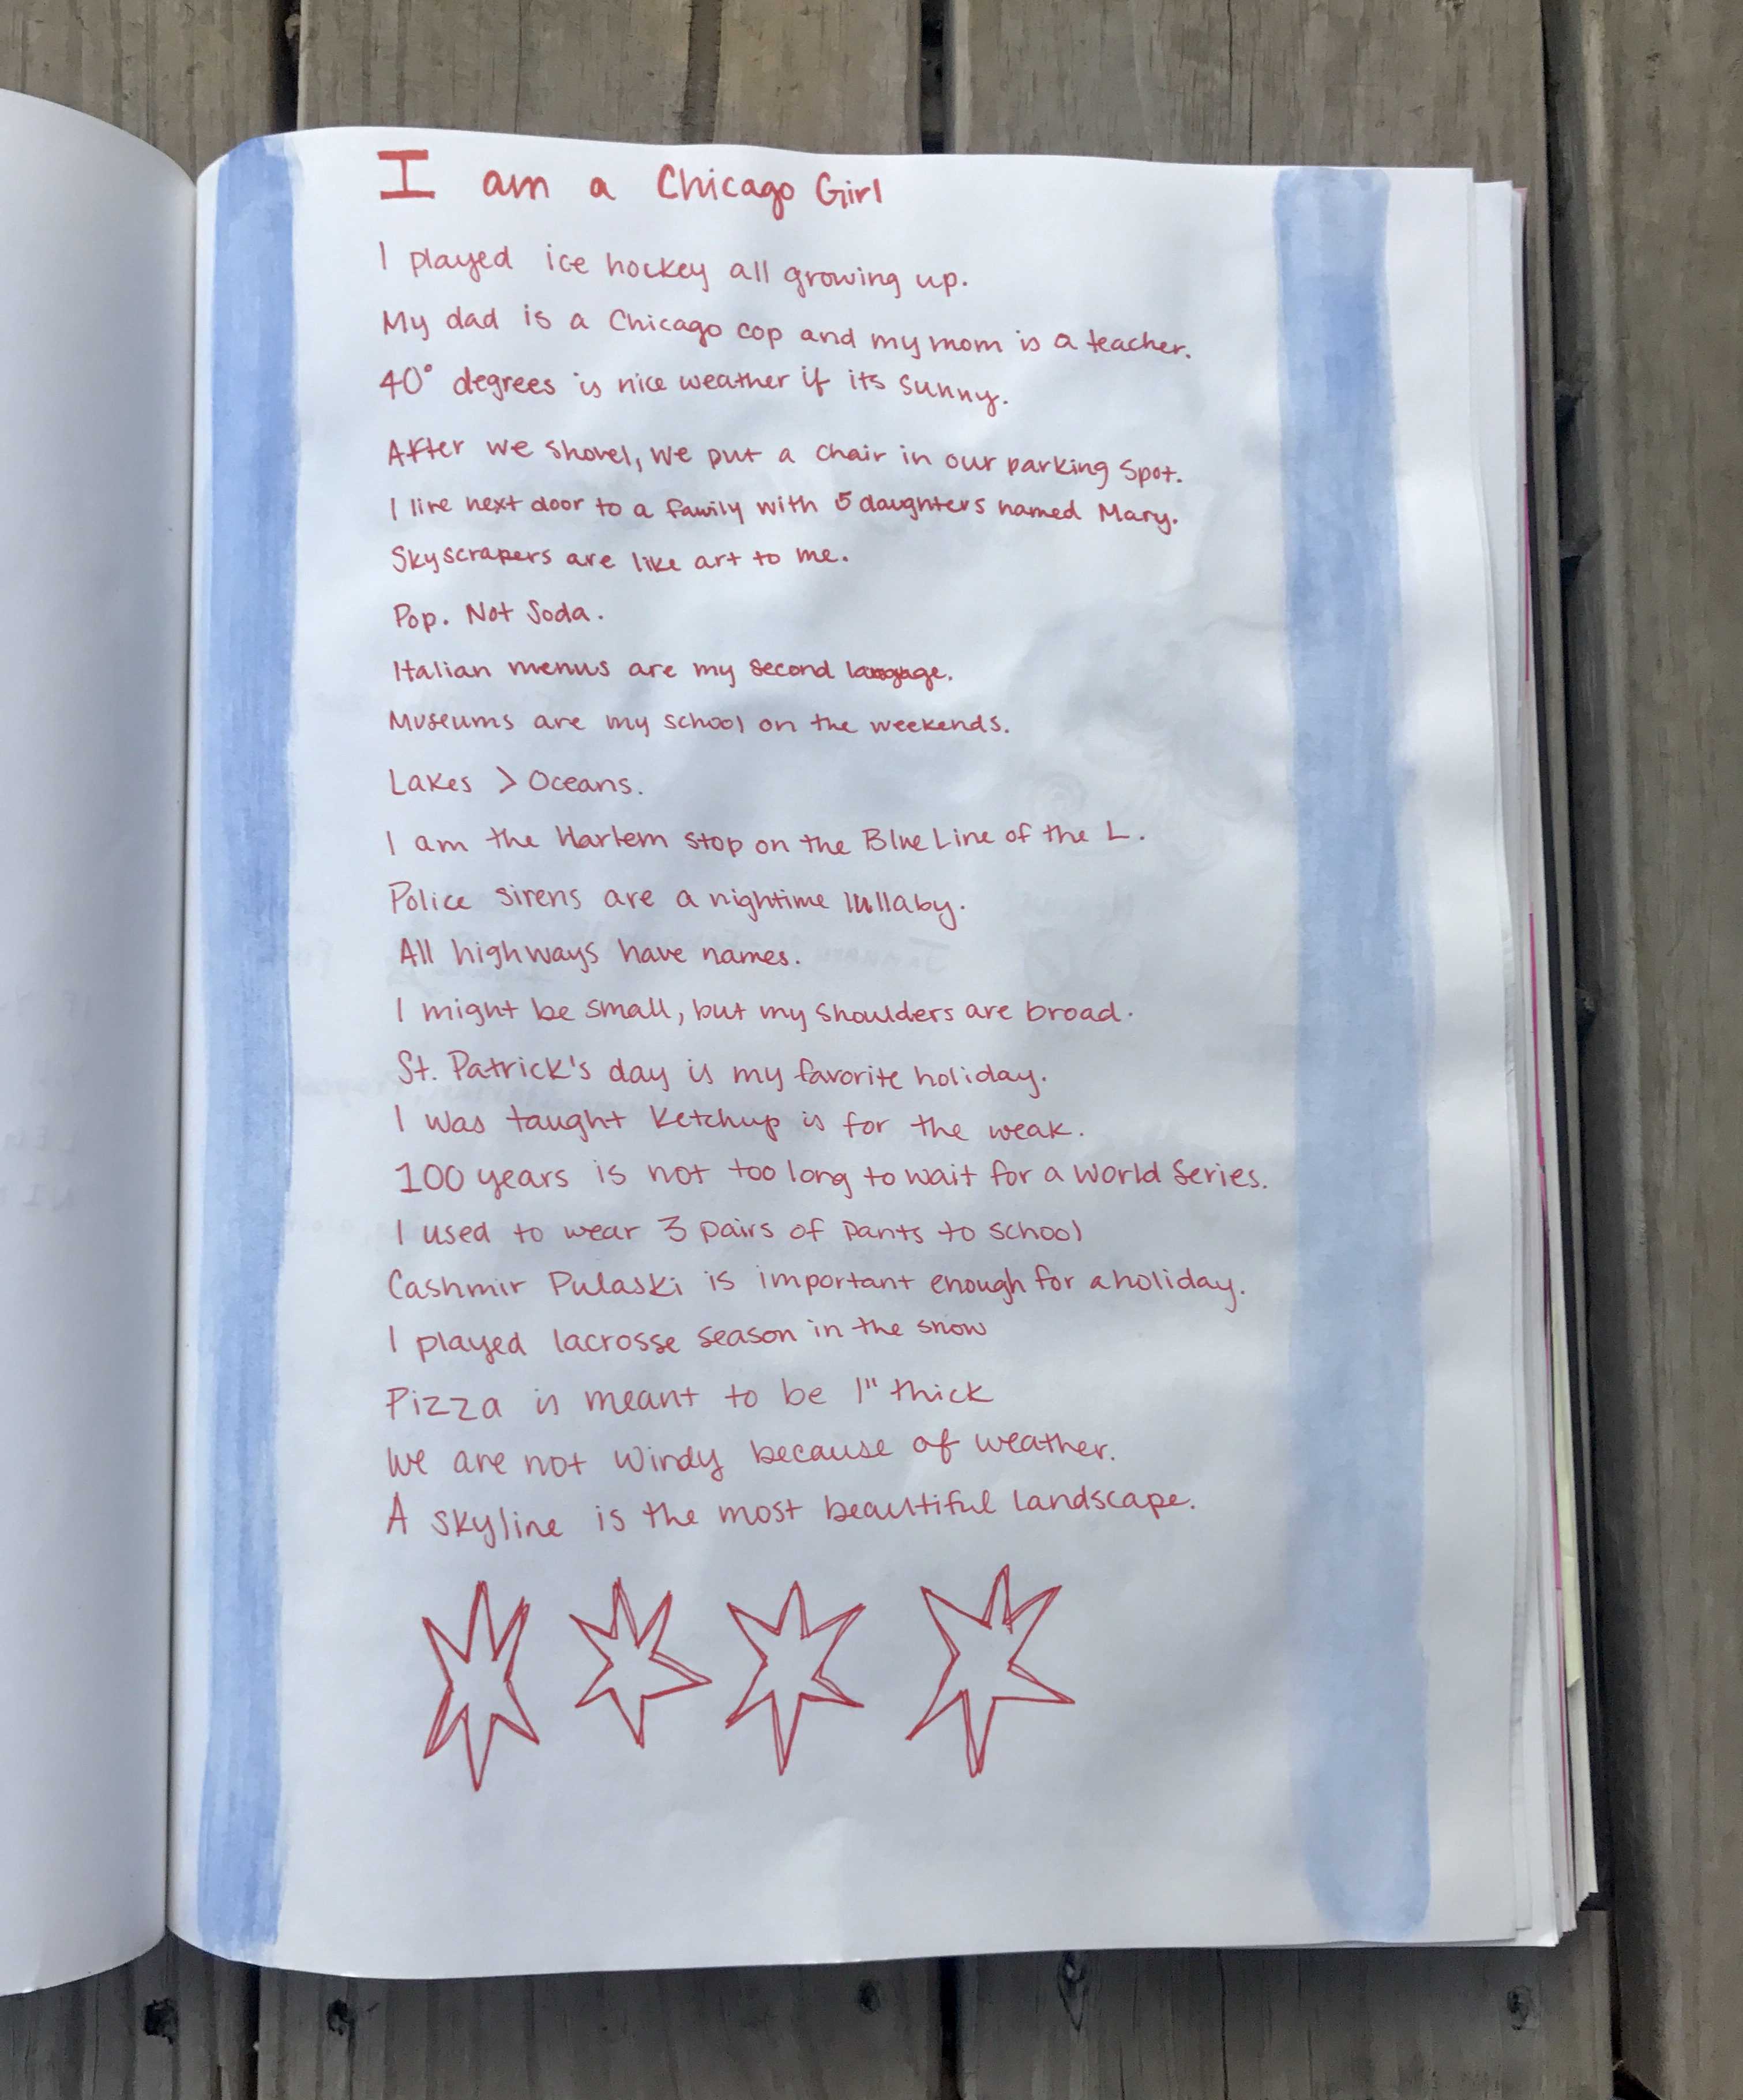 I am a Chicago Girl
I played ice hockey all growing up.
My dad is a Chicago cop and my mom is a teacher.
40° degrees is nice weather if its sunny.
After we shovel, we put a chair in our parking spot.
I live next door to a family with 5 daughters named Mary.
Skyscrapers are like art to me.
Pop. Not Soda.
Italian menus are my second language.
Museums are my school on the weekends.
Lakes > Oceans.
I am the Harlem stop on the Blue Line of the L.
Police sirens are a nightime lullaby.
All highways have names.
I might be small, but my shoulders are broad.
St. Patrick's day is my favorite holiday.
I was taught ketchup is for the weak.
100 years is not too long to wait for a World Series.
I used to wear 3 pairs of pants to school
Cashmir Pulaski is important enough for a holiday.
I played lacrosse season in the snow
Pizza is meant to be 1" thick
We are not Windy because of weather.
A skyline is the most beautiful landscape.